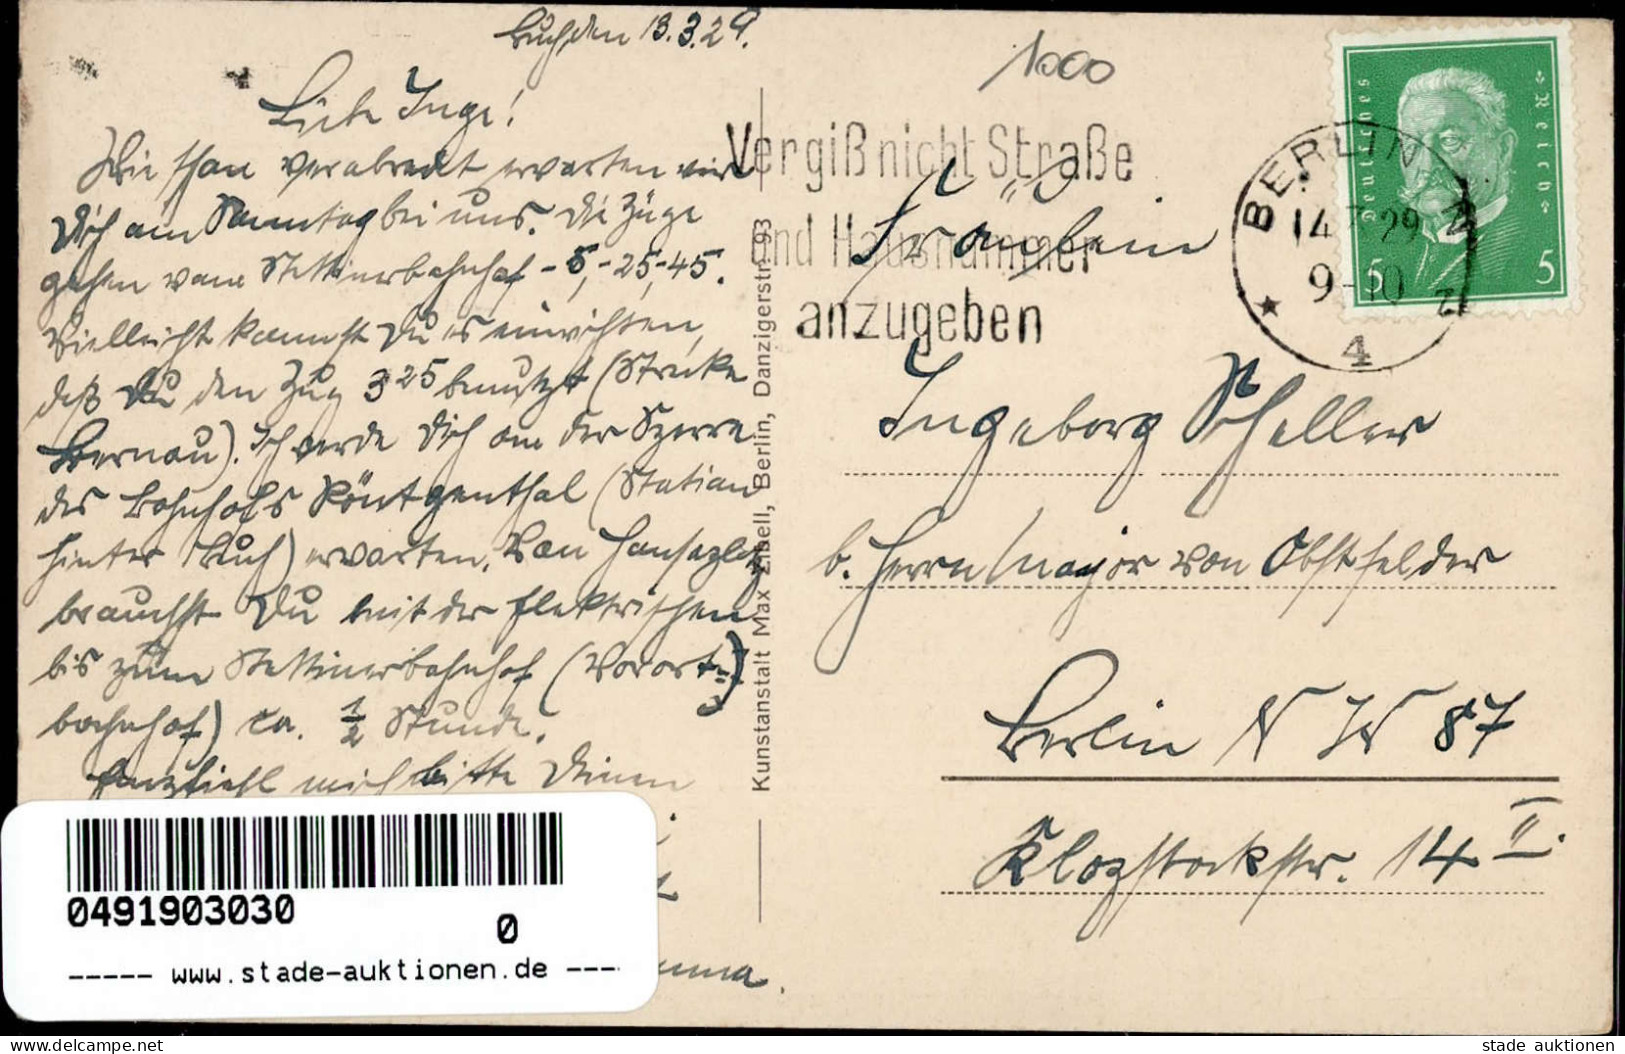 Buch, den 13.3.29.
Liebe Inge!
Wie schon verabredet erwarten wir
Dich am Sonntag bei uns. Die Züge
gehen vom Stettinerbahnhof -5, -25, -45.
Vielleicht kannst Du es einrichten,
daß Du den Zug 3 25 benutzt (Strecke
Bernau). Ich werde Dich an der Sperre
des Bahnhofs Röntgenthal (Station
hinter Buch) erwarten. Von Hansaplatz
brauchst Du mit der Elektrischen
bis zum Stettinerbahnhof (Vorort=
bahnhof) ca. 1/2 Stunde.
Empfiehl mich bitte Deinen
Kunstanstalt Max Zibell, Berlin, Danzigerstr. 93
1000
Vergiß nicht Straße
und Hausnummer
anzugeben
BERLIN
14.3.29
9-10
4
Deutsches Reich
5 5
Fräulein
Ingeborg Scheller
b. Herrn Major von Obstfelder
Berlin NW 87
Klopstockstr. 14 II.
0491903030
0
----- www.stade-auktionen.de ----
stade auktionen
www.delcampe.net